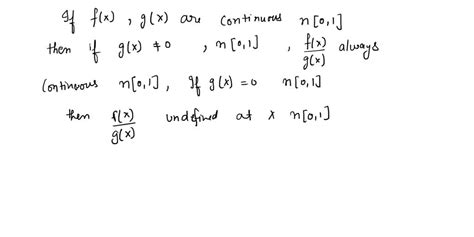 If f(x), g(x) are continuous n[0,1]
then if g(x) ≠ 0 , n[0,1] , f(x)/g(x) always
Continuous n[0,1], If g(x) = 0 n[0,1]
then f(x)/g(x) undefined at x n[0,1]